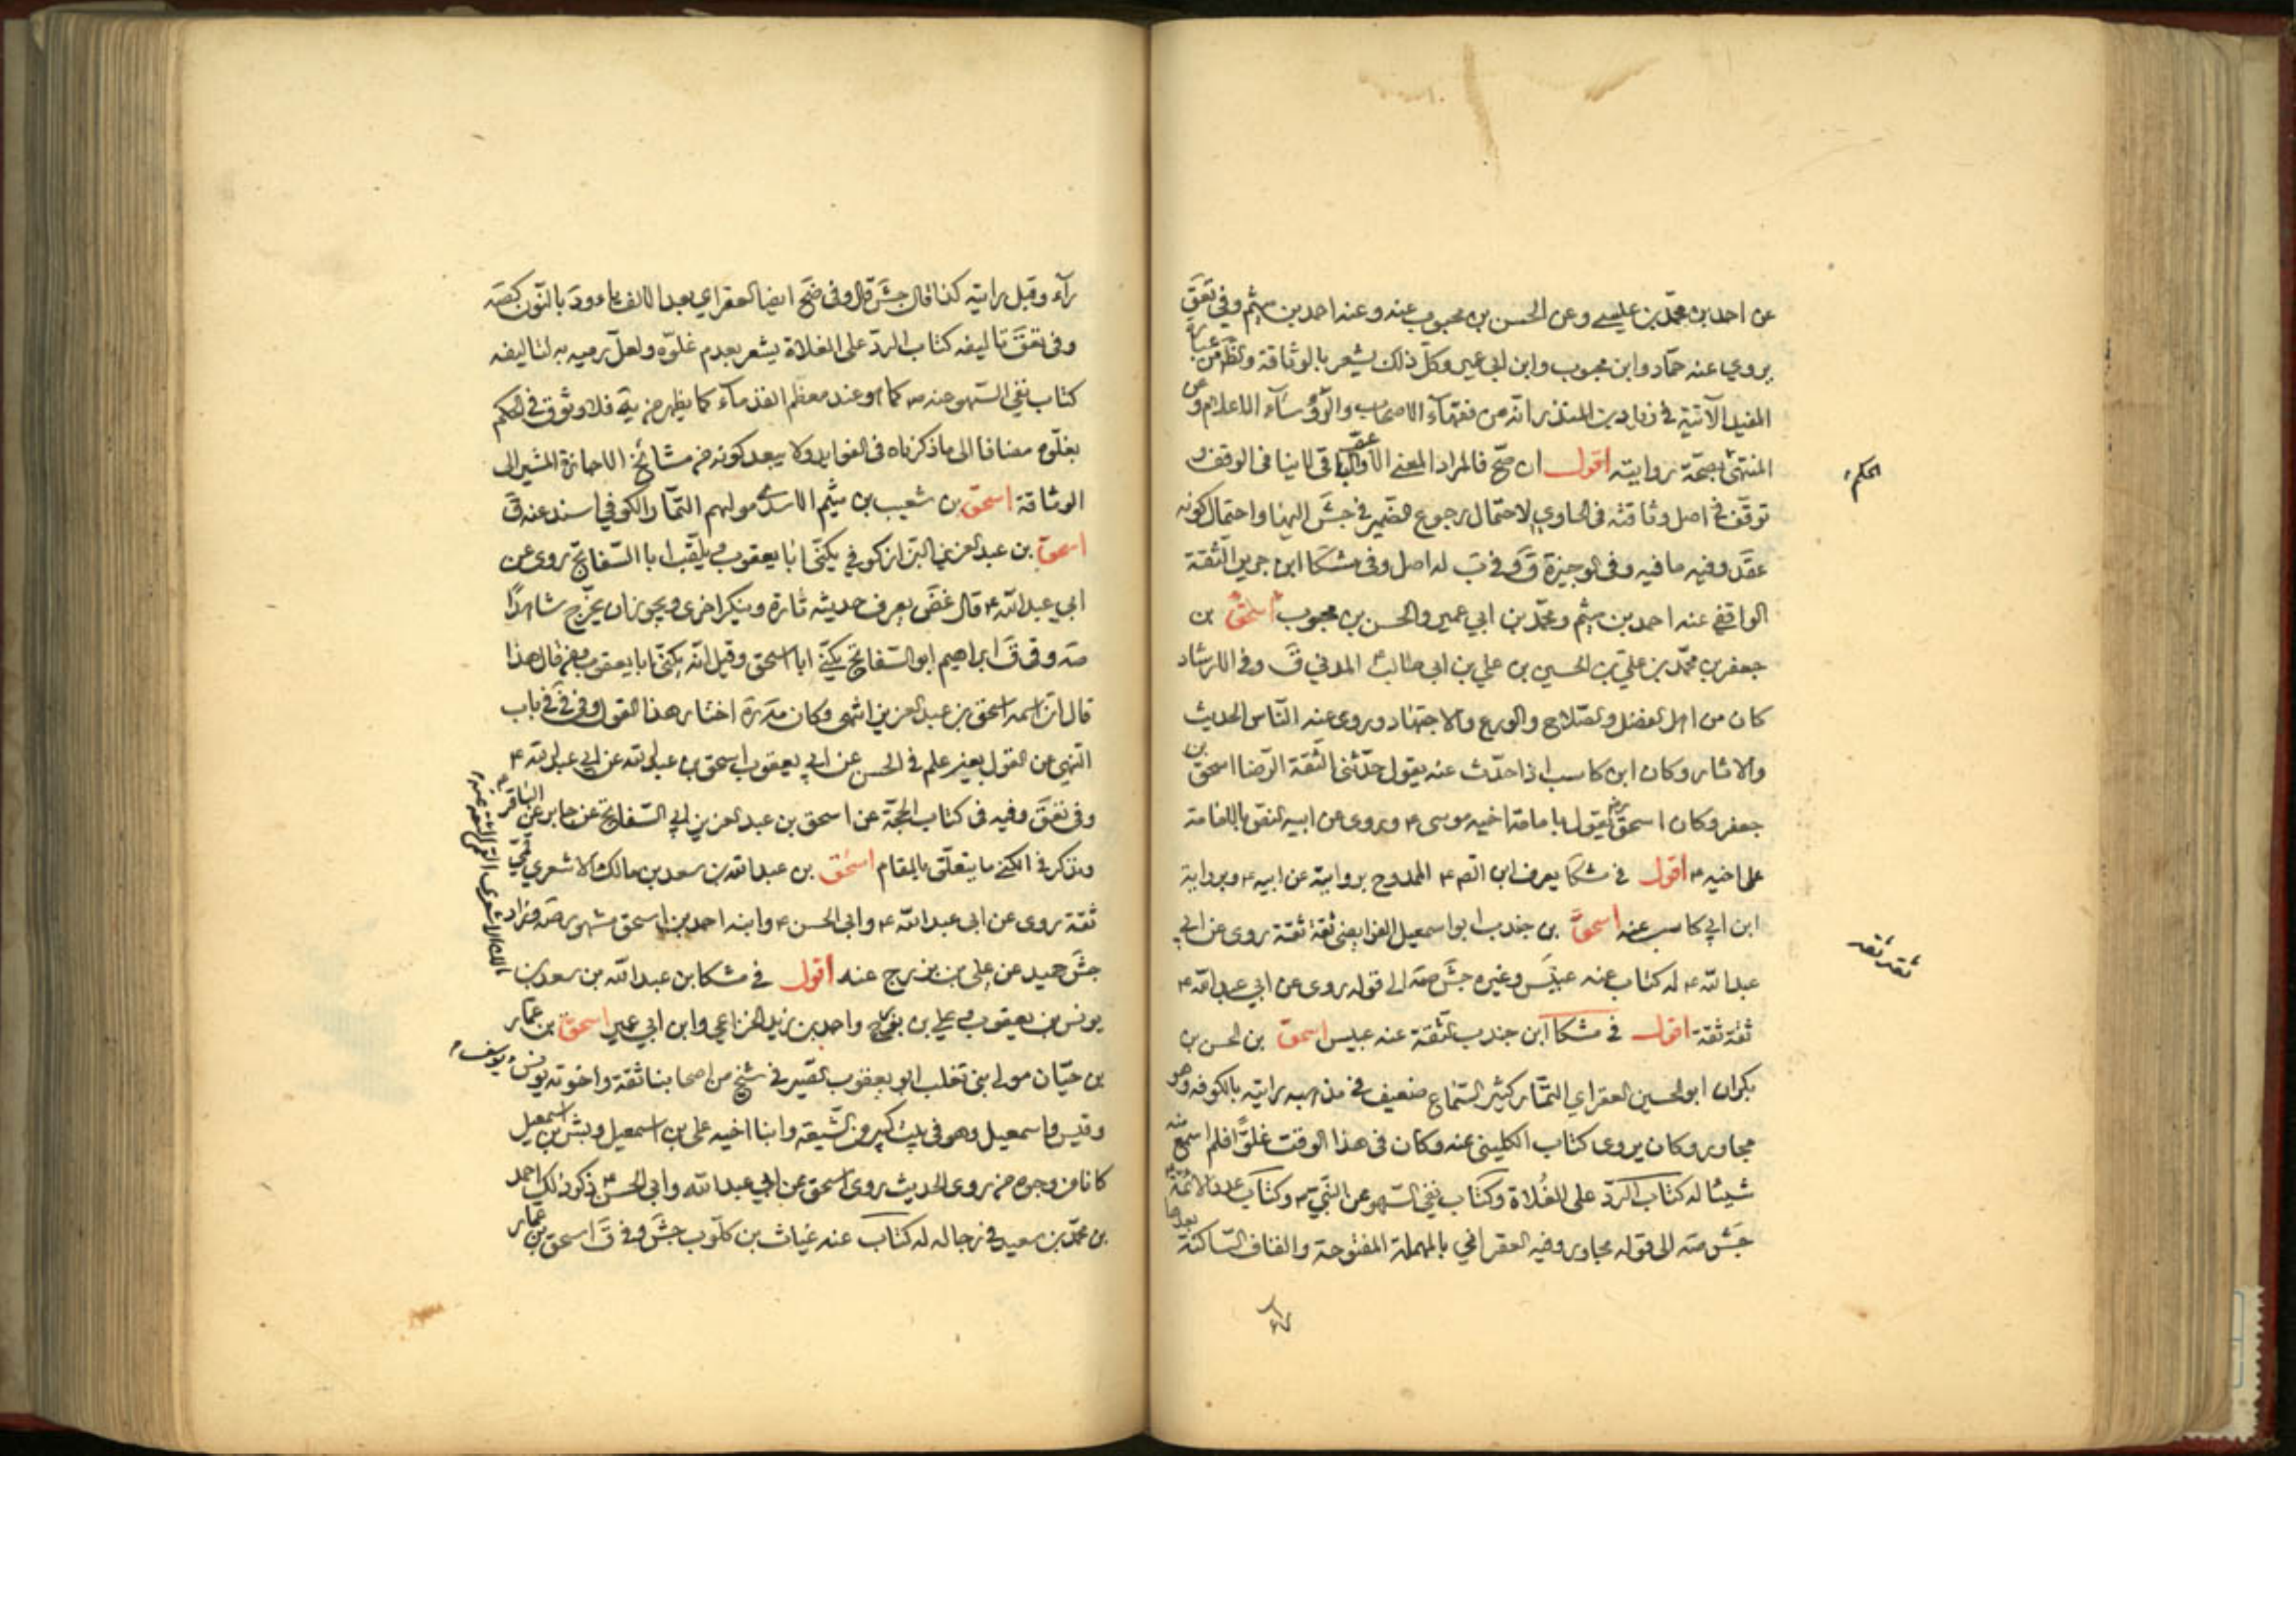 عن احمد بن محمّد بن عيسى وعن الحسن بن محبوب عنه وعنه احمد بن ميثم وفي تعق
يروي عنه حمّاد وابن محبوب وابن ابي عمير وكلّ ذلك يشعر بالوثاقة ويظهر من عبارة
المفيد الآتية في زياد بن المنذر انّه من فقهآء الاصحاب والرّؤسآء الاعلام وعن
المنتهى صحّة روايته اقول ان صحّ فالمراد المعنى الأعمّ لا ينافى الوقف و
الحكم
توقّف في اصل وثاقته فى الحاوي لاحتمال رجوع الضمير في جش اليهما واحتمال كونه
عقد وفيه ما فيه وفى الوجيزة ق وفي ب له اصل وفى مشكا ابن جرير الثقة
الواقفى عنه احمد بن ميثم ومحمّد بن ابي عمير والحسن بن محبوب اسحق بن
جعفر بن محمّد بن علي بن الحسين بن علي بن ابى طالب المدني ق وفى الارشاد
كان من اهل الفضل والصّلاح والورع والاجتهاد وروى عنه النّاس الحديث
والاثار وكان ابن كاسب اذا حدّث عنه يقول حدّثنى الثقة الرّضا اسحق بن
جعفر وكان اسحق يقول بامامة اخيه موسى ع وروى عن ابيه النصّ بالامامة
على اخيه ع اقول في مشكا يعرف ابن الص ع الممدوح بروايته عن ابيه ع وبرواية
ابن ابي كاسب عنه اسحق بن جندب ابو اسمعيل الفرايضى ثقة ثقة روى عن ابي
ثقه ثقه
عبد الله ع له كتاب عنه عبيس وغيره جش صه الى قوله روى عن ابي عبد الله ع
ثقة ثقة اقول في مشكا ابن جندب الثقة عنه عبيس اسحق بن الحسن بن
بكران ابو الحسين العقراي التمّار كثير السّماع ضعيف في مذهبه رايته بالكوفه وهو
مجاور وكان يروى كتاب الكلينى عنه وكان فى هذا الوقت غلوّا فلم اسمع منه
شيئا له كتاب الردّ على الغُلاة وكتاب نفى السّهو عن النّبيّ ص وكتاب عدد الائمّة
جش صه الى قوله مجاور وفيه العقرانى بالمهملة المفتوحة والقاف السّاكنة بعدها
رآء وقيل برايته كذا قال جش قال وفى ضح ايضا العقراي بعد الالف ياء ود بالنّون كصه
وفى تعق تاليفه كتاب الردّ على الغلاة يشعر بعدم غلوّه ولعلّ رميه به لتاليفه
كتاب نفى السّهو عنه ص كما هو عند معظم القدمآء كما يظهر من يه فلا وثوق في الحكم
بغلوّه مضافا الى ما ذكرناه فى الفوايد ولا يبعد كونه من مشائخ الاجازة المشير الى
الوثاقة اسحق بن شعيب بن ميثم الاسدى مولهم التمّار الكوفي اسند عنه ق
اسحق بن عبد العزيز البزّاز كوفي يكنّى ابا يعقوب ويلقّب ابا السّفاتج روى عن
ابي عبد الله ع قال غض يعرف حديثه تارة وينكر اخرى ويجوز ان يخرّج شاهدًا
صه وفى ق ابراهيم ابو السّفاتج يكنّى ابا اسحق وقيل انّه يكنّى ابا يعقوب فمن قال هذا
قال انّ اسمه اسحق بن عبد العزيز انتهى وكان مد ره اختار هذا القول وفى في في باب
النّهي عن القول بغير علم فى الحسن عن ابي يعقوب اسحق بن عبد الله عن ابي عبد الله ع
وفى تعق وفيه فى كتاب الحجّة عن اسحق بن عبد العزيز ابي السّفاتج عن جابر عن الباقر ع
ونذكر فى الكنى ما يتعلّق بالمقام اسحق بن عبد الله بن سعد بن مالك الاشعري قمّي
ثقة روى عن ابى عبد الله ع وابى الحسن ع وابنه احمد بن اسحق مشهور صه وزاد
جش حميد عن على بن بزرج عنه اقول في مشكا بن عبد الله بن سعد بن
يونس بن يعقوب وعلي بن واحمد بن زيد الخزاعي وابن ابي عمير اسحق بن عمّار
بن حيّان مولى بنى تغلب ابو يعقوب الصّيرفى شيخ من اصحابنا ثقة واخوته يونس ويوسف
وقيس واسمعيل وهو فى بيت كبير من الشّيعة وابنا اخيه على بن اسمعيل وبشر بن اسمعيل
كانا من وجوه من روى الحديث روى اسحق عن ابي عبد الله وابى الحسن ع ذكر ذلك احمد
بن محمّد بن سعيد في رجاله له كتاب عنه غياث بن كلّوب جش وفي ق اسحق بن عمّار